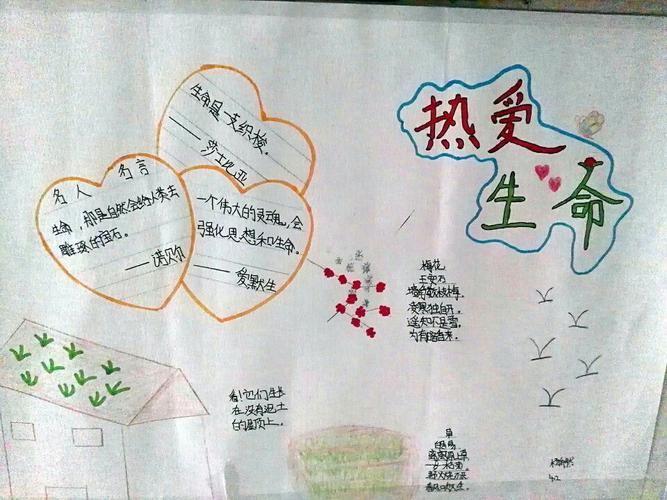 热爱
生命
生命是一支织梭。
——莎士比亚
名人名言
生命,那是自然会给人类去
雕琢的宝石。
——诺贝尔
一个伟大的灵魂,会
强化思想和生命。
——爱默生
梅花
王安石
墙角数枝梅,
凌寒独自开。
遥知不是雪,
为有暗香来。
看!它们生长
在没有泥土
的屋顶上。
草